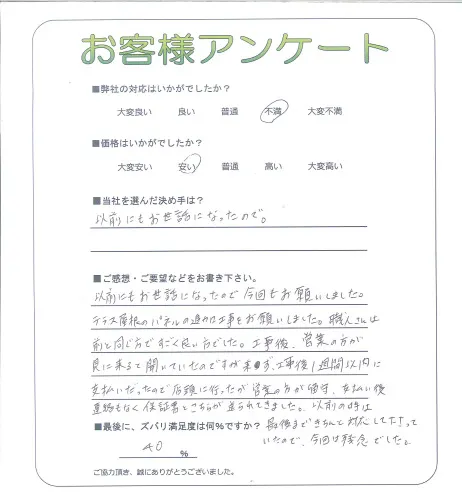 お客様アンケート
■弊社の対応はいかがでしたか?
大変良い 良い 普通 不満 大変不満
■価格はいかがでしたか?
大変安い 安い 普通 高い 大変高い
■当社を選んだ決め手は?
以前にもお世話になったので。
■ご感想・ご要望などをお書き下さい。
以前にもお世話になったので今回もお願いしました。
テラス屋根のパネルの追加工事をお願いしました。職人さんは
前と同じ方ですごく良い方でした。工事後、営業の方が
見に来ると聞いていたのですが来ず、工事後1週間以内に
支払いだったので店頭に行ったが営業の方が留守、支払い後
連絡もなく保証書とこちらが送られてきました。以前の時は
■最後に、ズバリ満足度は何%ですか? 最後まできちんと対応して下さって
いたので、今回は残念でした。
40 %
ご協力頂き、誠にありがとうございました。